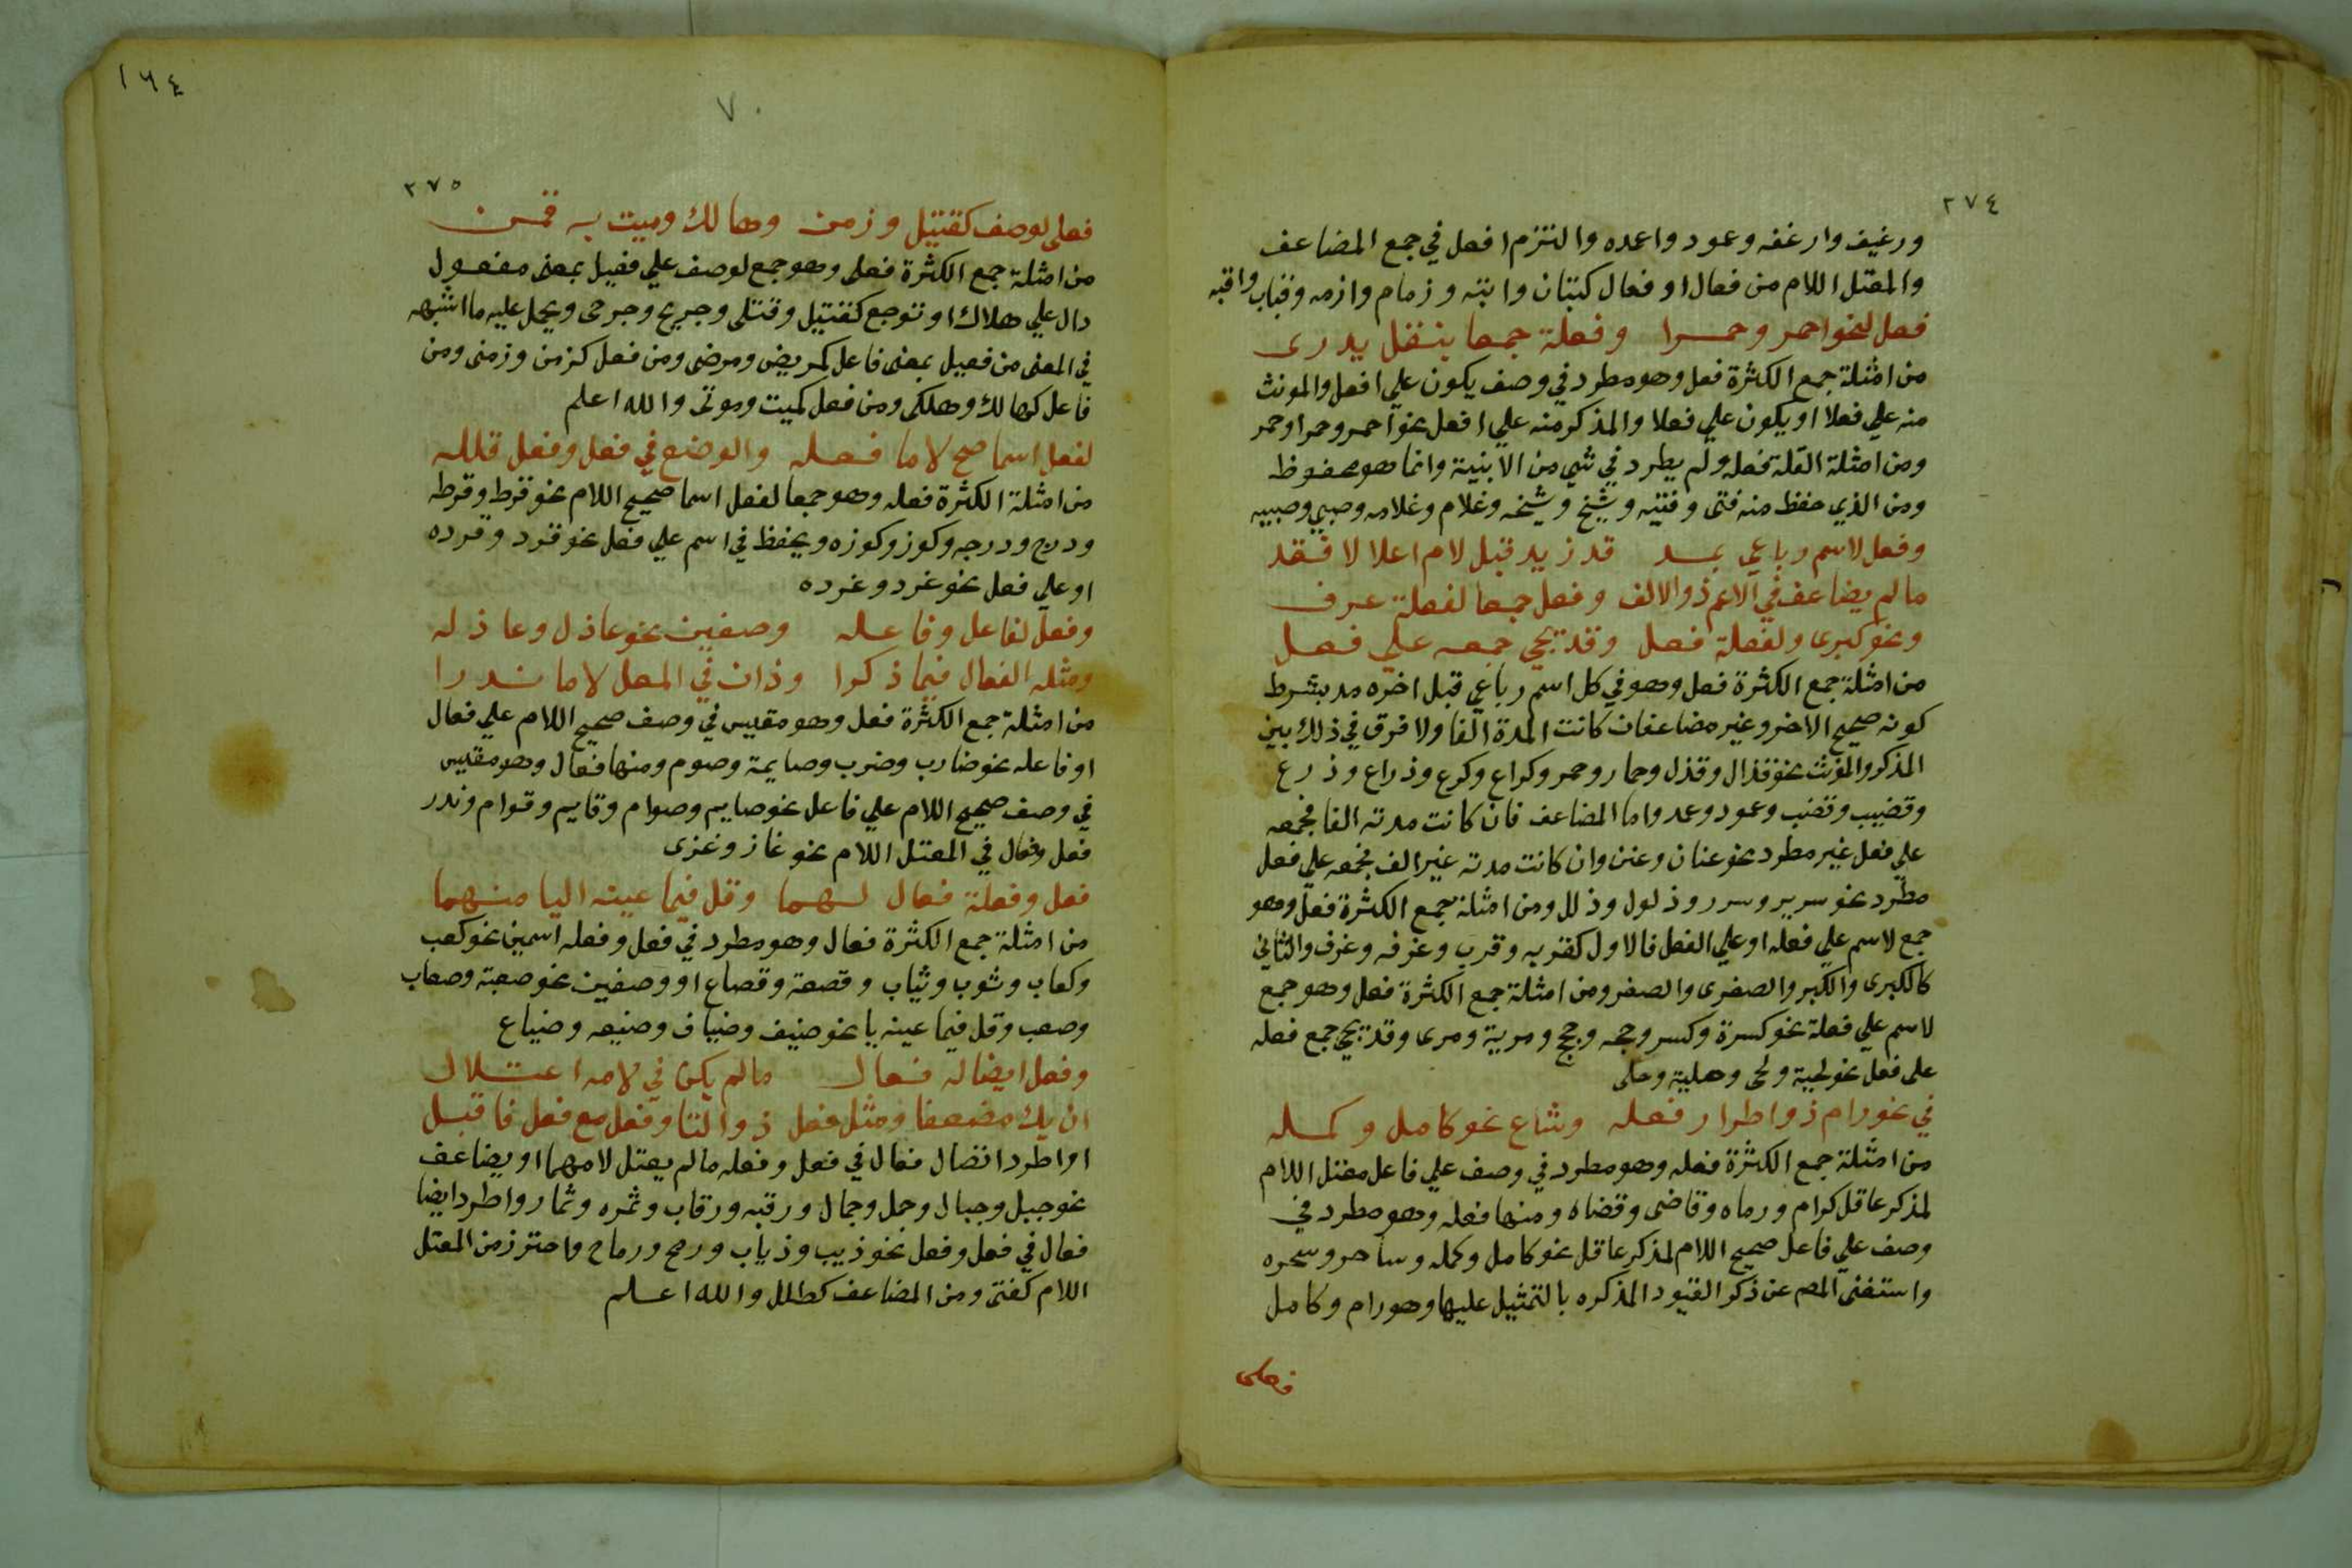 ٢٧٤
ورغيف وارغفه وعمود واعمده والتزم افعل في جمع المضاعف
والمعتل اللام من فعال او فعال كبتان وابته وزمام وازمه وقباب واقبه
فعل لنحو احمر وحمرا وفعلة جمعا بنقل يدرى
من امثلة جمع الكثرة فعل وهو مطرد في وصف يكون علي افعل والمونث
منه علي فعلا او يكون علي فعلا والمذكر منه علي افعل نحو احمر وحمرا وحمر
ومن امثلة القلة فعله ولم يطرد في شي من الابنية وانما هو محفوظ
ومن الذي حفظ منه فتى وفتيه وشيخ وشيخه وغلام وغلامه وصبي وصبيه
وفعل لاسم رباعي بمد قد زيد قبل لام اعلالا فقد
مالم يضاعف في الاعم ذو الالف وفعل جمعا لفعلة عرف
ونحو كبرى ولفعلة فعل وقد يجي جمعه علي فعل
من امثلة جمع الكثرة فعل وهو في كل اسم رباعي قبل اخره مد بشرط
كونه صحيح الاخر وغير مضاعف ان كانت المدة الفا ولا فرق في ذلك بين
المذكر والمؤنث نحو قذال وقذل وحمار وحمر وكراع وكرع وذراع وذرع
وقضيب وقضب وعمود وعمد واما المضاعف فان كانت مدته الفا فجمعه
علي فعل غير مطرد نحو عنان وعنن وان كانت مدته غير الف فجمعه علي فعل
مطرد نحو سرير وسرر وذلول وذلل ومن امثلة جمع الكثرة فعل وهو
جمع لاسم علي فعله او علي الفعل فالاول كقربه وقرب وغرفه وغرف والثاني
كالكبرى والكبر والصغرى والصغر ومن امثلة جمع الكثرة فعل وهو جمع
لاسم علي فعلة نحو كسرة وكسر وحجه وحجج ومرية ومرى وقد يجي جمع فعله
على فعل نحو لحية ولحى وحلية وحلى
في نحو رام ذو اطراد فعله وشاع نحو كامل وكمله
من امثلة جمع الكثرة فعله وهو مطرد في وصف علي فاعل معتل اللام
لمذكر عاقل كرام ورماه وقاضى وقضاه ومنها فعله وهو مطرد في
وصف علي فاعل صحيح اللام لمذكر عاقل نحو كامل وكمله وساحر وسحره
واستغنى المص عن ذكر القيود المذكره بالتمثيل عليها وهو رام وكامل
فعلى
١٦٤
٧٠
٢٧٥
فعلى لوصف كقتيل وزمن وهالك وميت به قمن
من امثلة جمع الكثرة فعلى وهو جمع لوصف علي فعيل بمعنى مفعول
دال علي هلاك او توجع كقتيل وقتلى وجريح وجرحى ويحمل عليه ما اشبهه
في المعنى من فعيل بمعنى فاعل كمريض ومرضى ومن فعل كزمن وزمنى ومن
فاعل كهالك وهلكى ومن فعل كميت وموتى والله اعلم
لفعل اسما صح لاما فعله والوضع في فعل وفعل قلله
من امثلة الكثرة فعله وهو جمعا لفعل اسما صحيح اللام نحو قرط وقرطه
ودرج ودرجه وكوز وكوزه ويحفظ في اسم علي فعل نحو قرد وقرده
او علي فعل نحو غرد وغرده
وفعل لفاعل وفاعله وصفين نحو عاذل وعاذله
ومثله الفعال فيما ذكرا وذان في المعل لاما ندرا
من امثلة جمع الكثرة فعل وهو مقيس في وصف صحيح اللام علي فعال
او فاعله نحو ضارب وضرب وصايمة وصوم ومنها فعال وهو مقيس
في وصف صحيح اللام علي فاعل نحو صايم وصوام وقايم وقوام وندر
فعل وفعال في المعتل اللام نحو غاز وغزى
فعل وفعلة فعال لهما وقل فيما عينه اليا منهما
من امثلة جمع الكثرة فعال وهو مطرد في فعل وفعله اسمين نحو كعب
وكعاب وثوب وثياب وقصعة وقصاع او وصفين نحو صعبة وصعاب
وصعب وقل فيما عينه يا نحو ضيف وضياف وضيعه وضياع
وفعل ايضا له فعال مالم يكن في لامه اعتلال
ان يك مضعفا ومثل فعل ذو التا وفعل مع فعل فاقبل
او اطرد انضال فعال في فعل وفعله مالم يعتل لامهما او يضاعف
نحو جبل وجبال وجمل وجمال ورقبه ورقاب وثمره وثمار واطرد ايضا
فعال في فعل وفعل نحو ذيب وذياب ورمح ورماح واحترز من المعتل
اللام كفتى ومن المضاعف كطلل والله اعلم